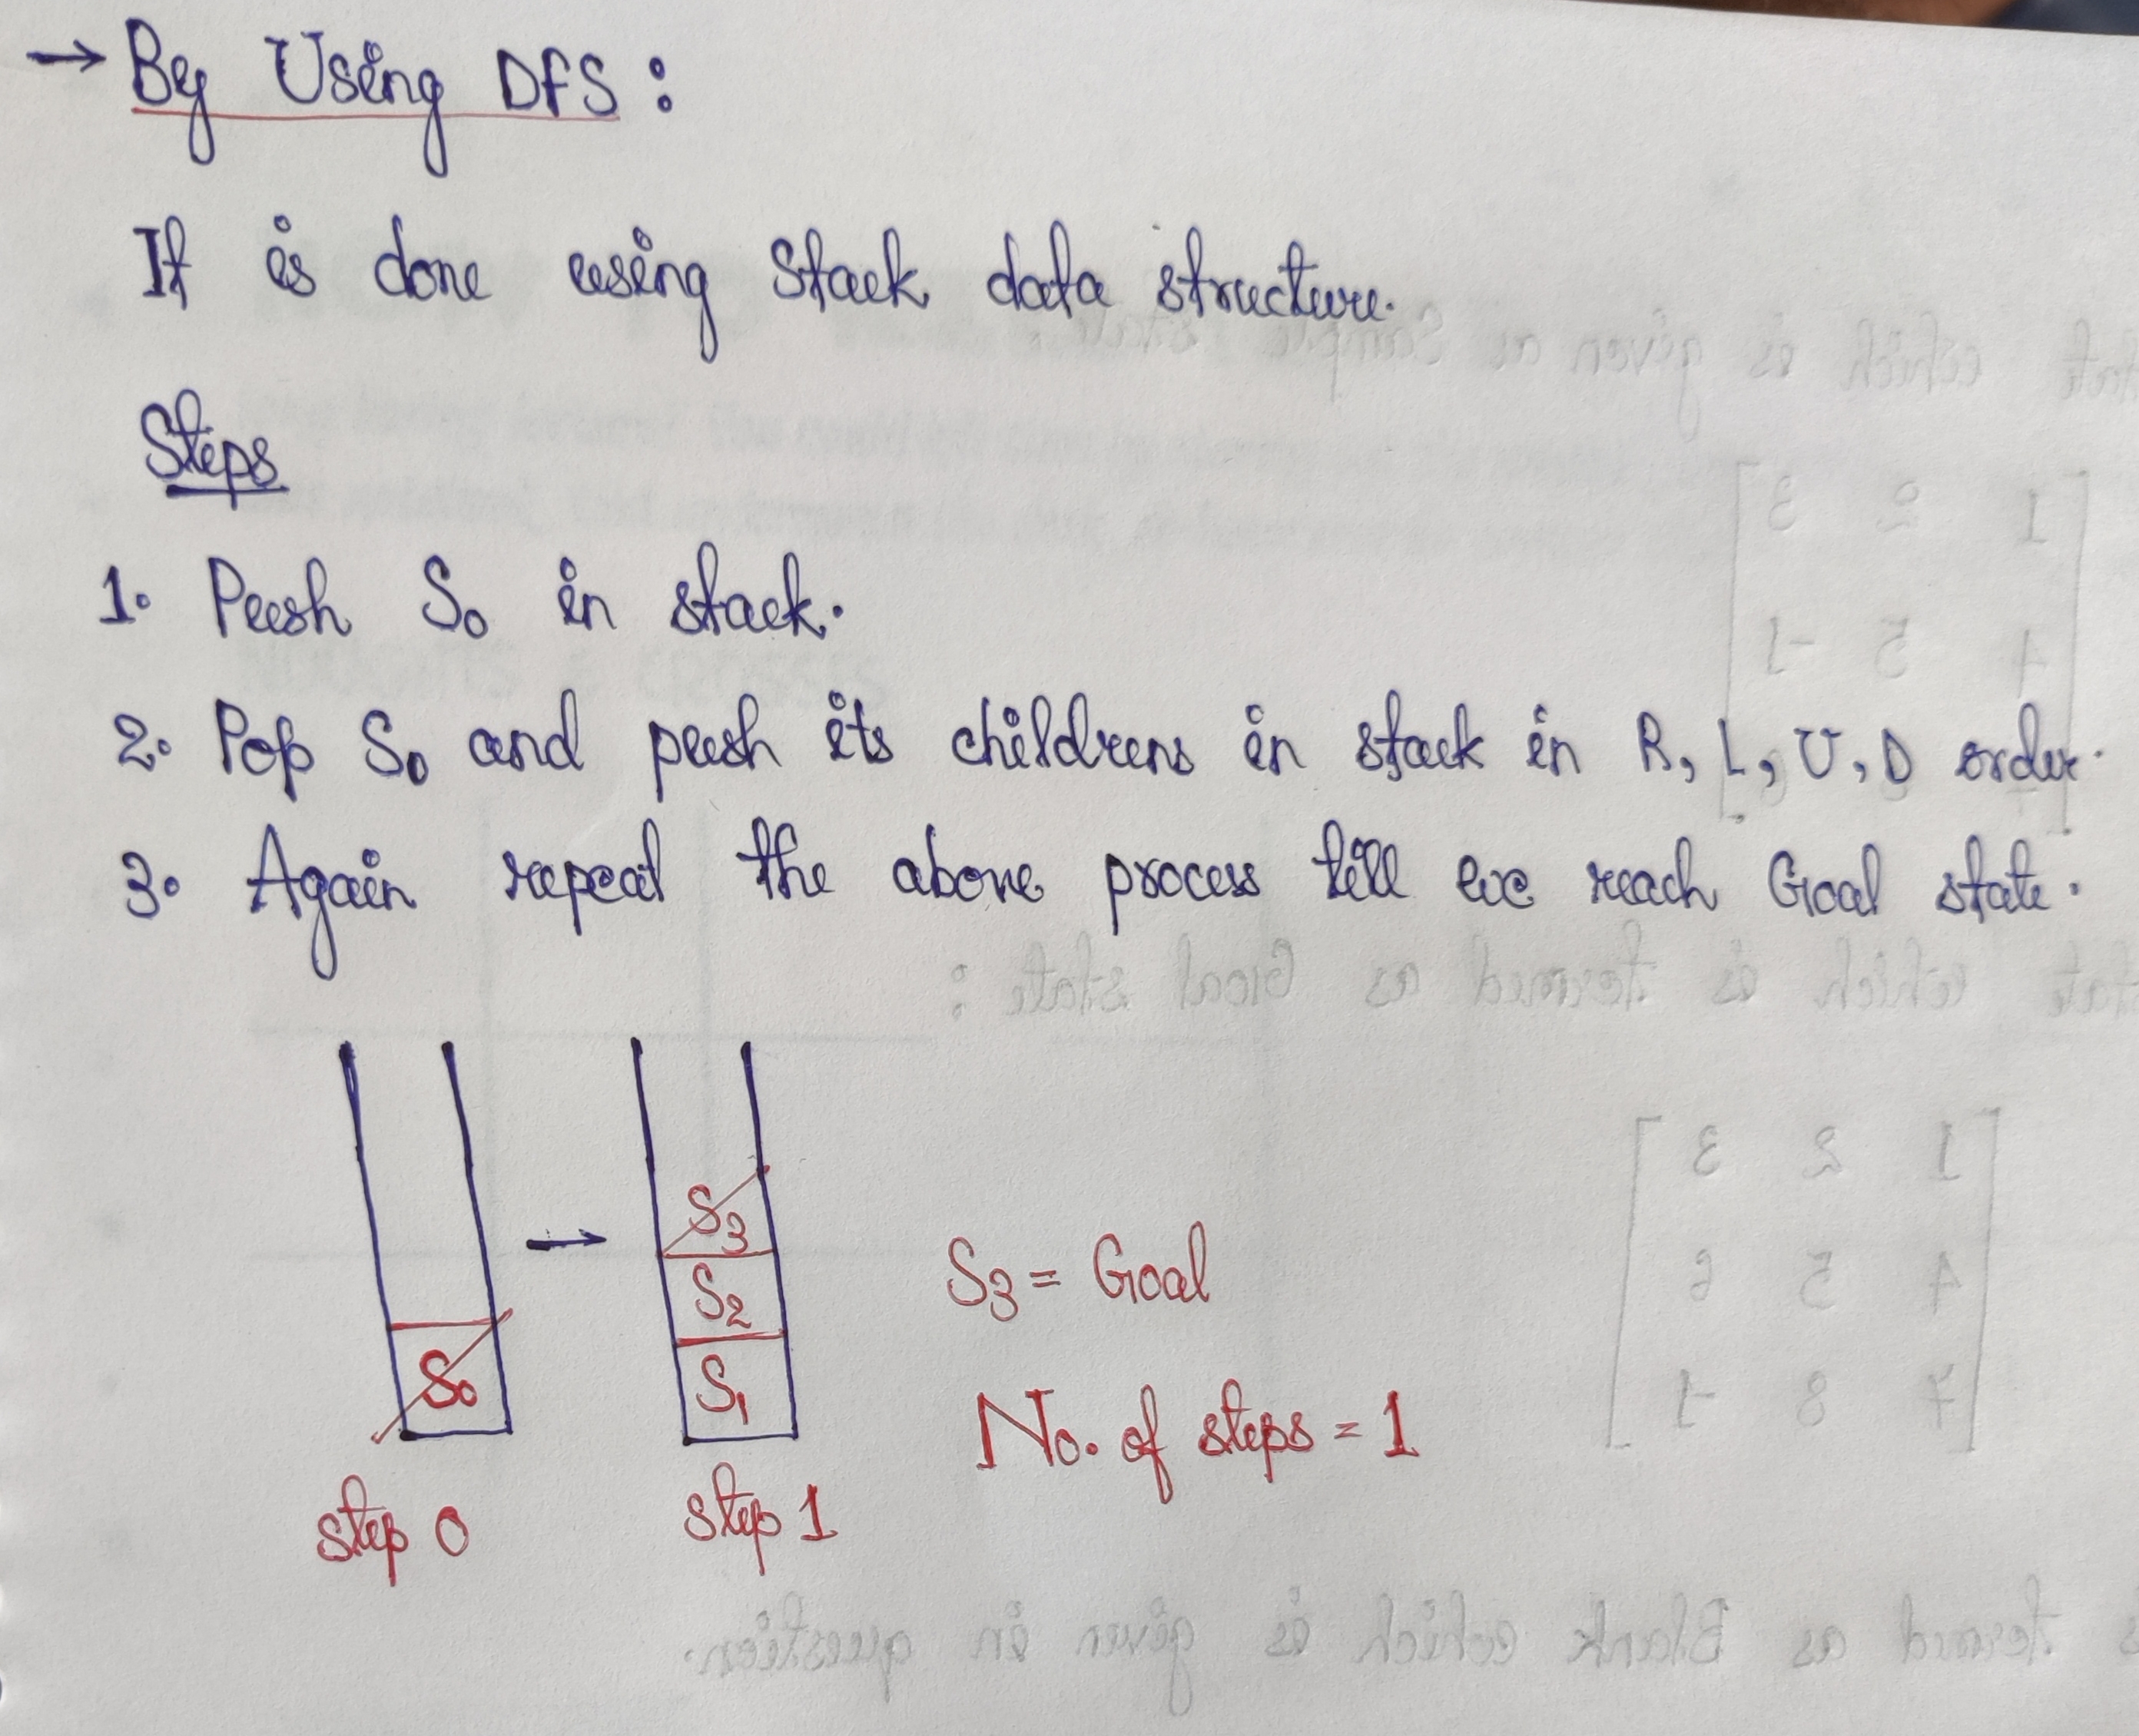 → By Using DFS :
It is done using Stack data structure.
Steps
1. Push S₀ in stack.
2. Pop S₀ and push its childrens in stack in R, L, U, D order.
3. Again repeat the above process till we reach Goal state.
S₀
→
S₃
S₂
S₁
S₃ = Goal
No. of steps = 1
step 0
step 1